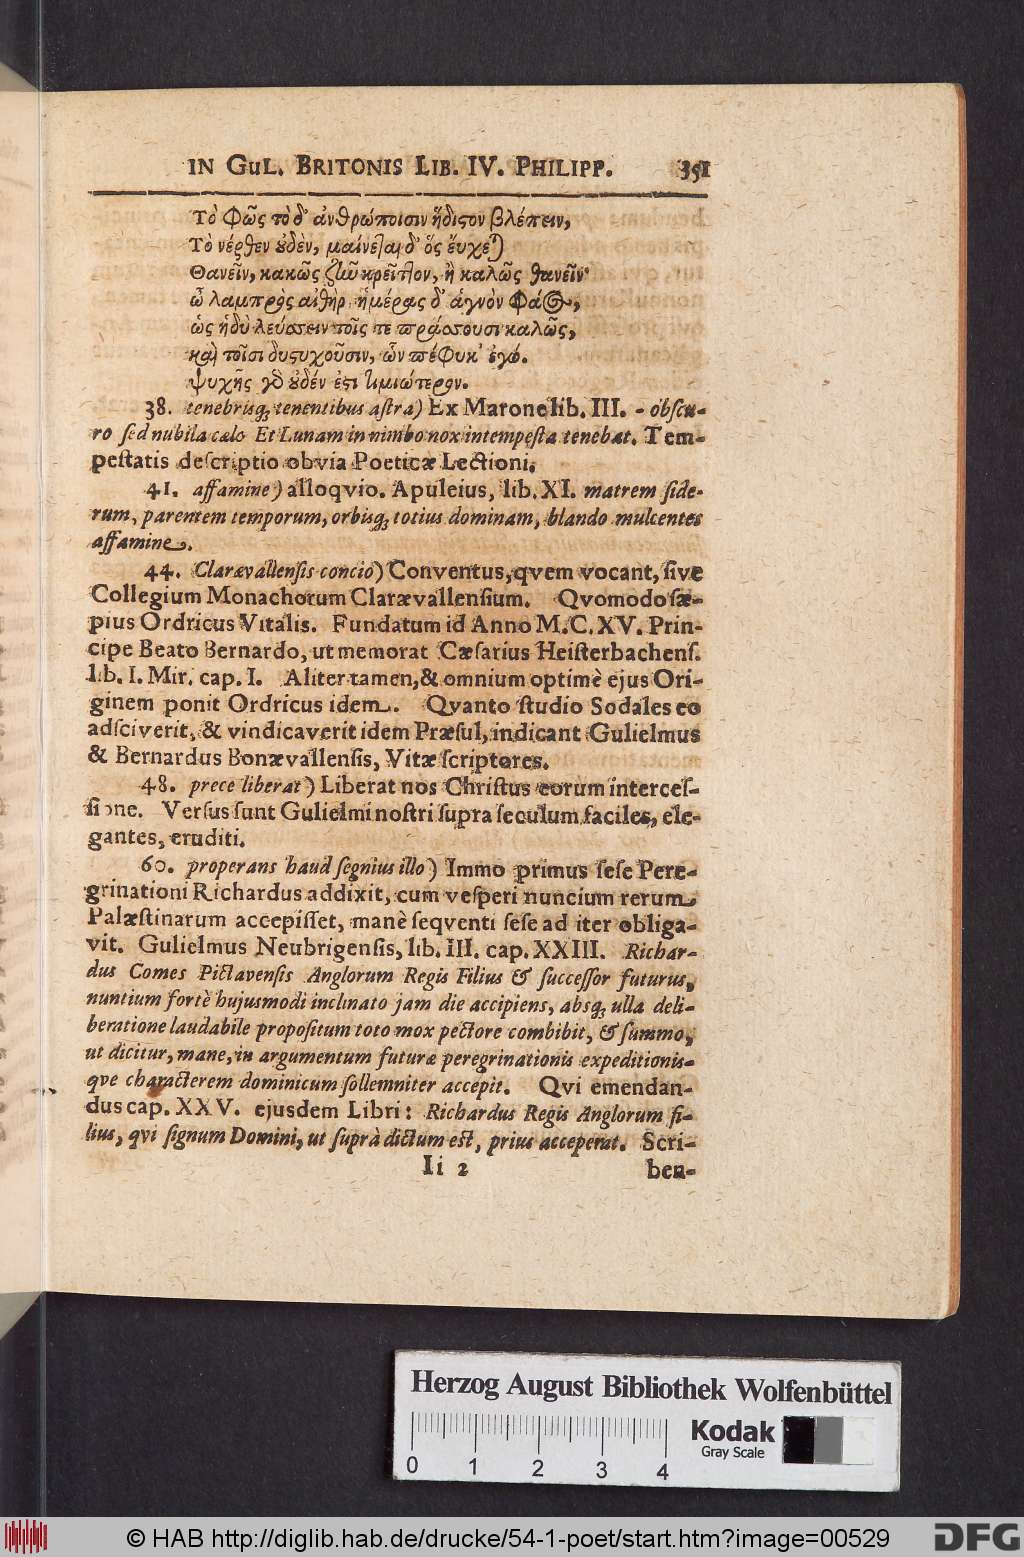 IN GuL. BRITONIS LIB. IV. PHILIPP. 351
Τὸ φῶς τὸ δ' ἀνθρώποισιν ἥδιστον βλέπειν,
Τὸ νέρθεν ὐδὲν, μαίνεται δ' ὅς ἔυχεται
Θανεῖν, κακῶς ζῶν κρεῖττον, ἢ καλῶς θανεῖν·
ὦ λαμπρὸς αἰθὴρ ἡμέρας δ' ἁγνὸν φάος,
ὡς ἡδὺ λεύσσειν τοῖς τε πράσσουσι καλῶς,
καὶ τοῖσι δυςυχοῦσιν, ὧν πέφυκ' ἐγώ.
ψυχῆς γὸ ὐδέν ἐστι τιμιώτερον.
38. tenebrisq; tenentibus astra) Ex Marone lib. III. - obscu-
ro sed nubila cælo Et Lunam in nimbo nox intempesta tenebat. Tem-
pestatis descriptio obvia Poeticæ Lectioni.
41. affamine) alloqvio. Apuleius, lib. XI. matrem side-
rum, parentem temporum, orbisq; totius dominam, blando mulcentes
affamine.
44. Clarævallensis concio) Conventus, qvem vocant, sive
Collegium Monachorum Clarævallensium. Qvomodo sæ-
pius Ordricus Vitalis. Fundatum id Anno M.C.XV. Prin-
cipe Beato Bernardo, ut memorat Cæsarius Heisterbachens.
lib. I. Mir. cap. I. Aliter tamen, & omnium optimè ejus Ori-
ginem ponit Ordricus idem. Qvanto studio Sodales eo
adsciverit, & vindicaverit idem Præsul, indicant Gulielmus
& Bernardus Bonævallensis, Vitæ scriptores.
48. prece liberat) Liberat nos Christus eorum interces-
sione. Versus sunt Gulielmi nostri supra seculum faciles, ele-
gantes, eruditi.
60. properans haud segnius illo) Immo primus sese Pere-
grinationi Richardus addixit, cum vesperi nuncium rerum
Palæstinarum accepisset, manè seqventi sese ad iter obliga-
vit. Gulielmus Neubrigensis, lib. III. cap. XXIII. Richar-
dus Comes Pictavensis Anglorum Regis Filius & successor futurus,
nuntium fortè hujusmodi inclinato jam die accipiens, absq; ulla deli-
beratione laudabile propositum toto mox pectore combibit, & summo,
ut dicitur, mane, in argumentum futuræ peregrinationis expeditionis-
qve characterem dominicum sollemniter accepit. Qvi emendan-
dus cap. XXV. ejusdem Libri: Richardus Regis Anglorum fi-
lius, qvi signum Domini, ut suprà dictum est, prius acceperat. Scri-
Ii 2 ben-
Herzog August Bibliothek Wolfenbüttel
Kodak
Gray Scale
0 1 2 3 4
© HAB http://diglib.hab.de/drucke/54-1-poet/start.htm?image=00529
DFG